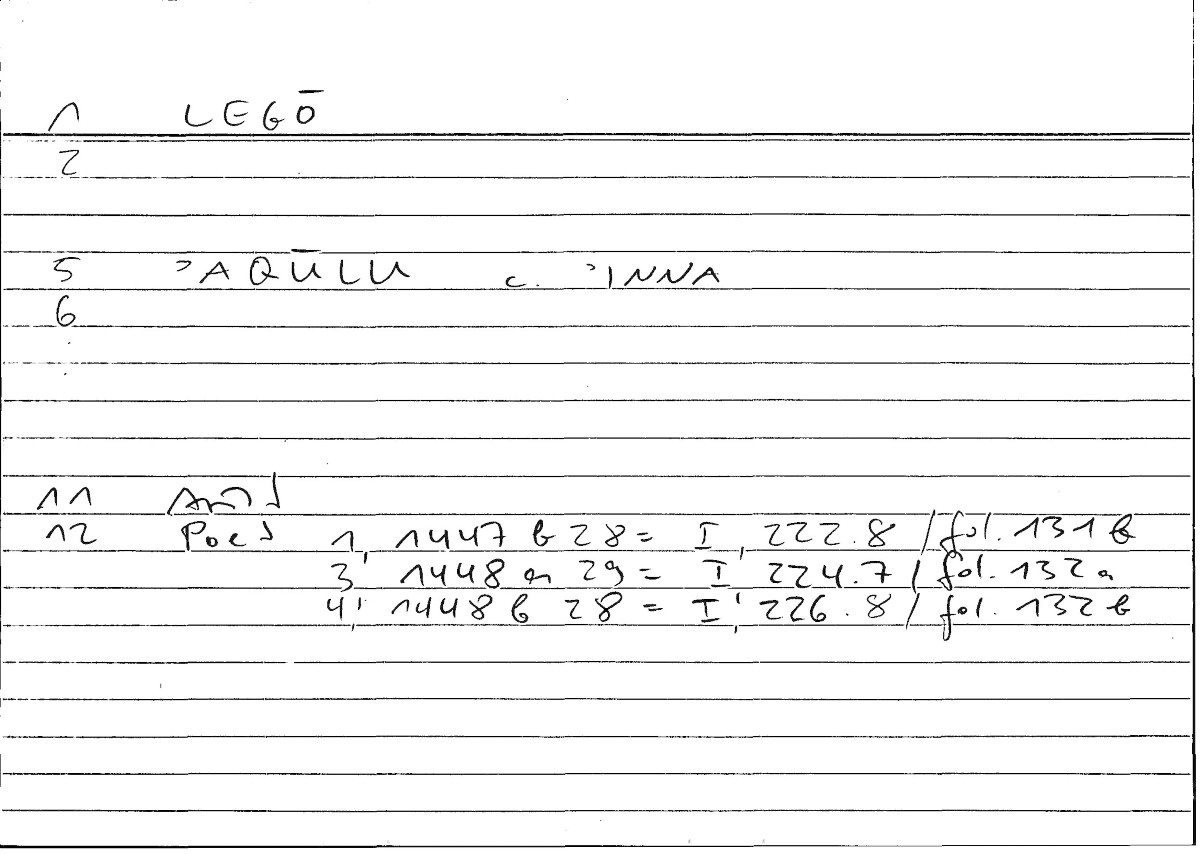 1 LEGŌ
2
5 ʾAQŪLU c. ʾINNA
6
11 Arist
12 Poet 1, 1447 b 28 = I, 222.8 / fol. 131 b
3, 1448 a 29 = I, 224.7 / fol. 132 a
4, 1448 b 28 = I, 226.8 / fol. 132 b